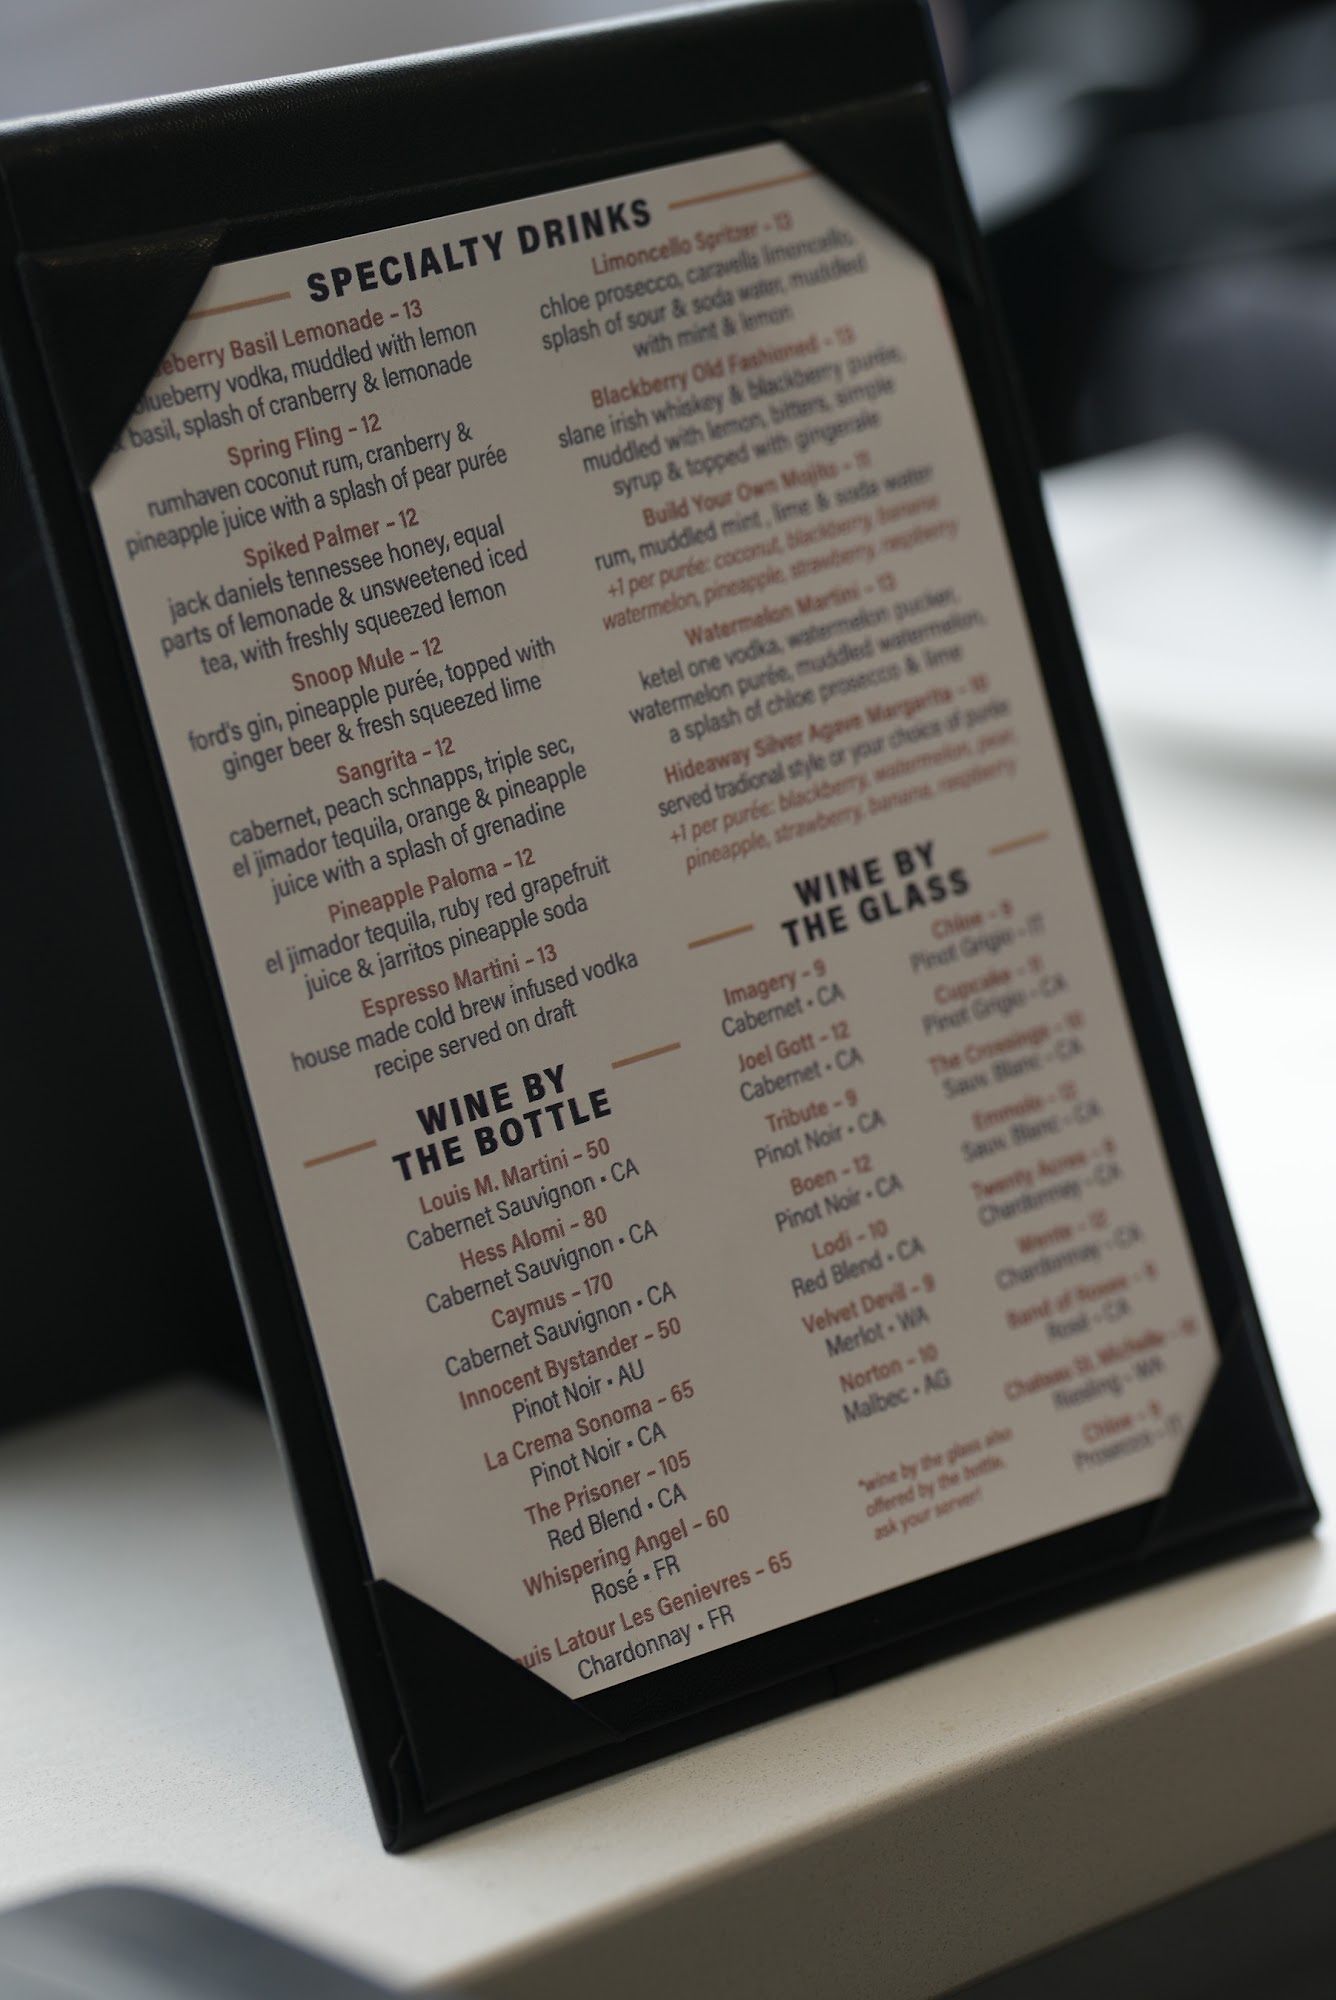 SPECIALTY DRINKS
eberry Basil Lemonade - 13
blueberry vodka, muddled with lemon
& basil, splash of cranberry & lemonade
Spring Fling - 12
rumhaven coconut rum, cranberry &
pineapple juice with a splash of pear purée
Spiked Palmer - 12
jack daniels tennessee honey, equal
parts of lemonade & unsweetened iced
tea, with freshly squeezed lemon
Snoop Mule - 12
ford's gin, pineapple purée, topped with
ginger beer & fresh squeezed lime
Sangrita - 12
cabernet, peach schnapps, triple sec,
el jimador tequila, orange & pineapple
juice with a splash of grenadine
Pineapple Paloma - 12
el jimador tequila, ruby red grapefruit
juice & jarritos pineapple soda
Espresso Martini - 13
house made cold brew infused vodka
recipe served on draft
Limoncello Spritzer - 13
chloe prosecco, caravella limoncello,
splash of sour & soda water, muddled
with mint & lemon
Blackberry Old Fashioned - 13
slane irish whiskey & blackberry purée,
muddled with lemon, bitters, simple
syrup & topped with gingerale
Build Your Own Mojito - 11
rum, muddled mint , lime & soda water
+1 per purée: coconut, blackberry, banana
watermelon, pineapple, strawberry, raspberry
Watermelon Martini - 13
ketel one vodka, watermelon pucker,
watermelon purée, muddled watermelon,
a splash of chloe prosecco & lime
Hideaway Silver Agave Margarita - 10
served tradional style or your choice of purée
+1 per purée: blackberry, watermelon, pear,
pineapple, strawberry, banana, raspberry
WINE BY
THE BOTTLE
Louis M. Martini - 50
Cabernet Sauvignon • CA
Hess Alomi - 80
Cabernet Sauvignon • CA
Caymus - 170
Cabernet Sauvignon • CA
Innocent Bystander - 50
Pinot Noir • AU
La Crema Sonoma - 65
Pinot Noir • CA
The Prisoner - 105
Red Blend • CA
Whispering Angel - 60
Rosé • FR
ouis Latour Les Genievres - 65
Chardonnay • FR
WINE BY
THE GLASS
Imagery - 9
Cabernet • CA
Joel Gott - 12
Cabernet • CA
Tribute - 9
Pinot Noir • CA
Boen - 12
Pinot Noir • CA
Lodi - 10
Red Blend • CA
Velvet Devil - 9
Merlot • WA
Norton - 10
Malbec • AG
*wine by the glass also
offered by the bottle.
ask your server!
Chloe - 9
Pinot Grigio - IT
Cupcake - 11
Pinot Grigio - CA
The Crossings - 10
Sauv. Blanc - CA
Emmolo - 12
Sauv. Blanc - CA
Twenty Acres - 9
Chardonnay - CA
- 12
Chardonnay - CA
Band of Roses - 9
Rosé - CA
Chateau St. Michelle -
Riesling - WA
Chloe - 9
Prosecco - IT